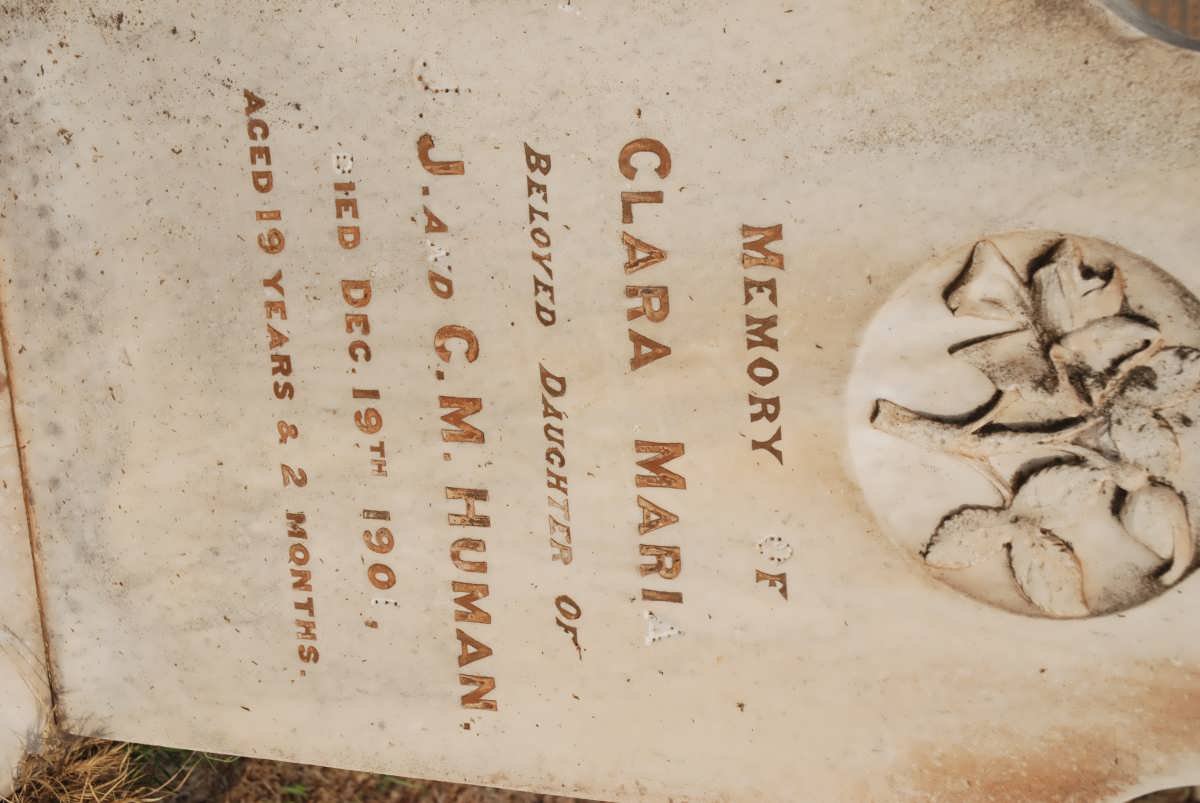 MEMORY OF
CLARA MARIA
BELOVED DAUGHTER OF
J. J. AND C. M. HUMAN,
DIED DEC. 19TH 1901,
AGED 19 YEARS & 2 MONTHS.